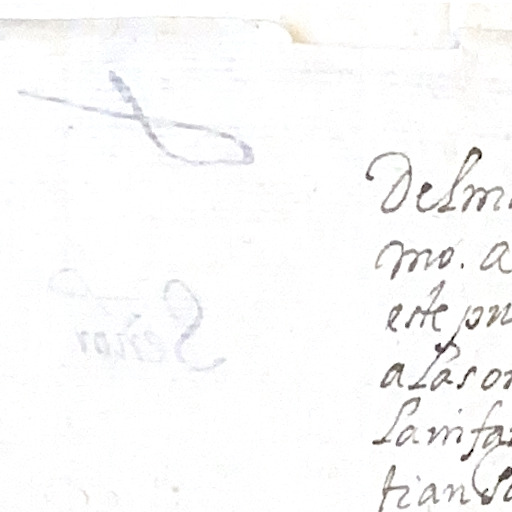 Señor
Delm
mo. a
este pu
alasor
lainfan
tian